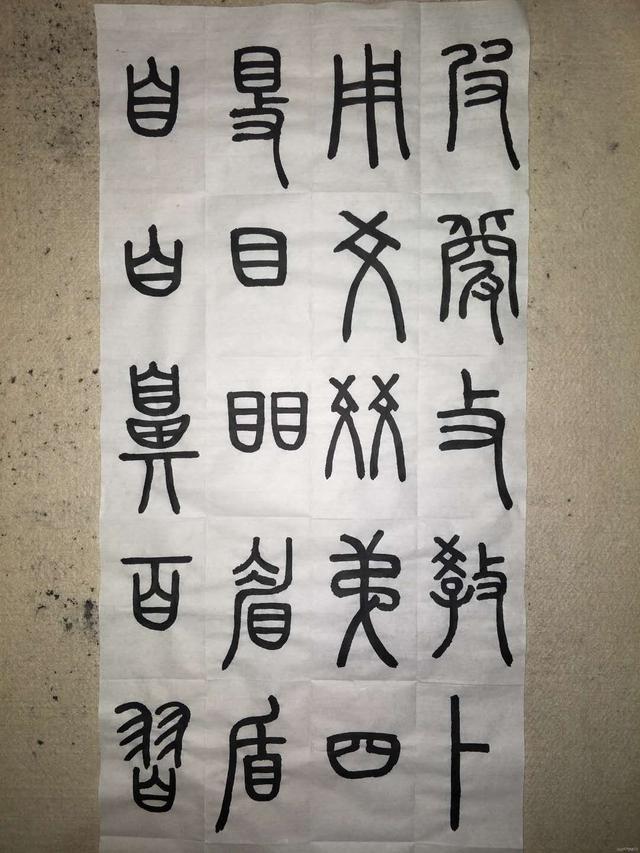 皮㼱攴教卜
用爻㸚弟四
𥄎目䀠眉盾
自白鼻百習